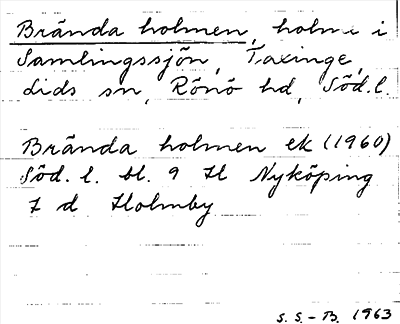 Brända holmen, holme i
Samlingssjön, Taxinge,
Lids sn, Rönö hd, Söd.l.
Brända holmen ek (1960)
Söd. l. bl. 9 H Nyköping
7 d Holmby
S. S.-B. 1963